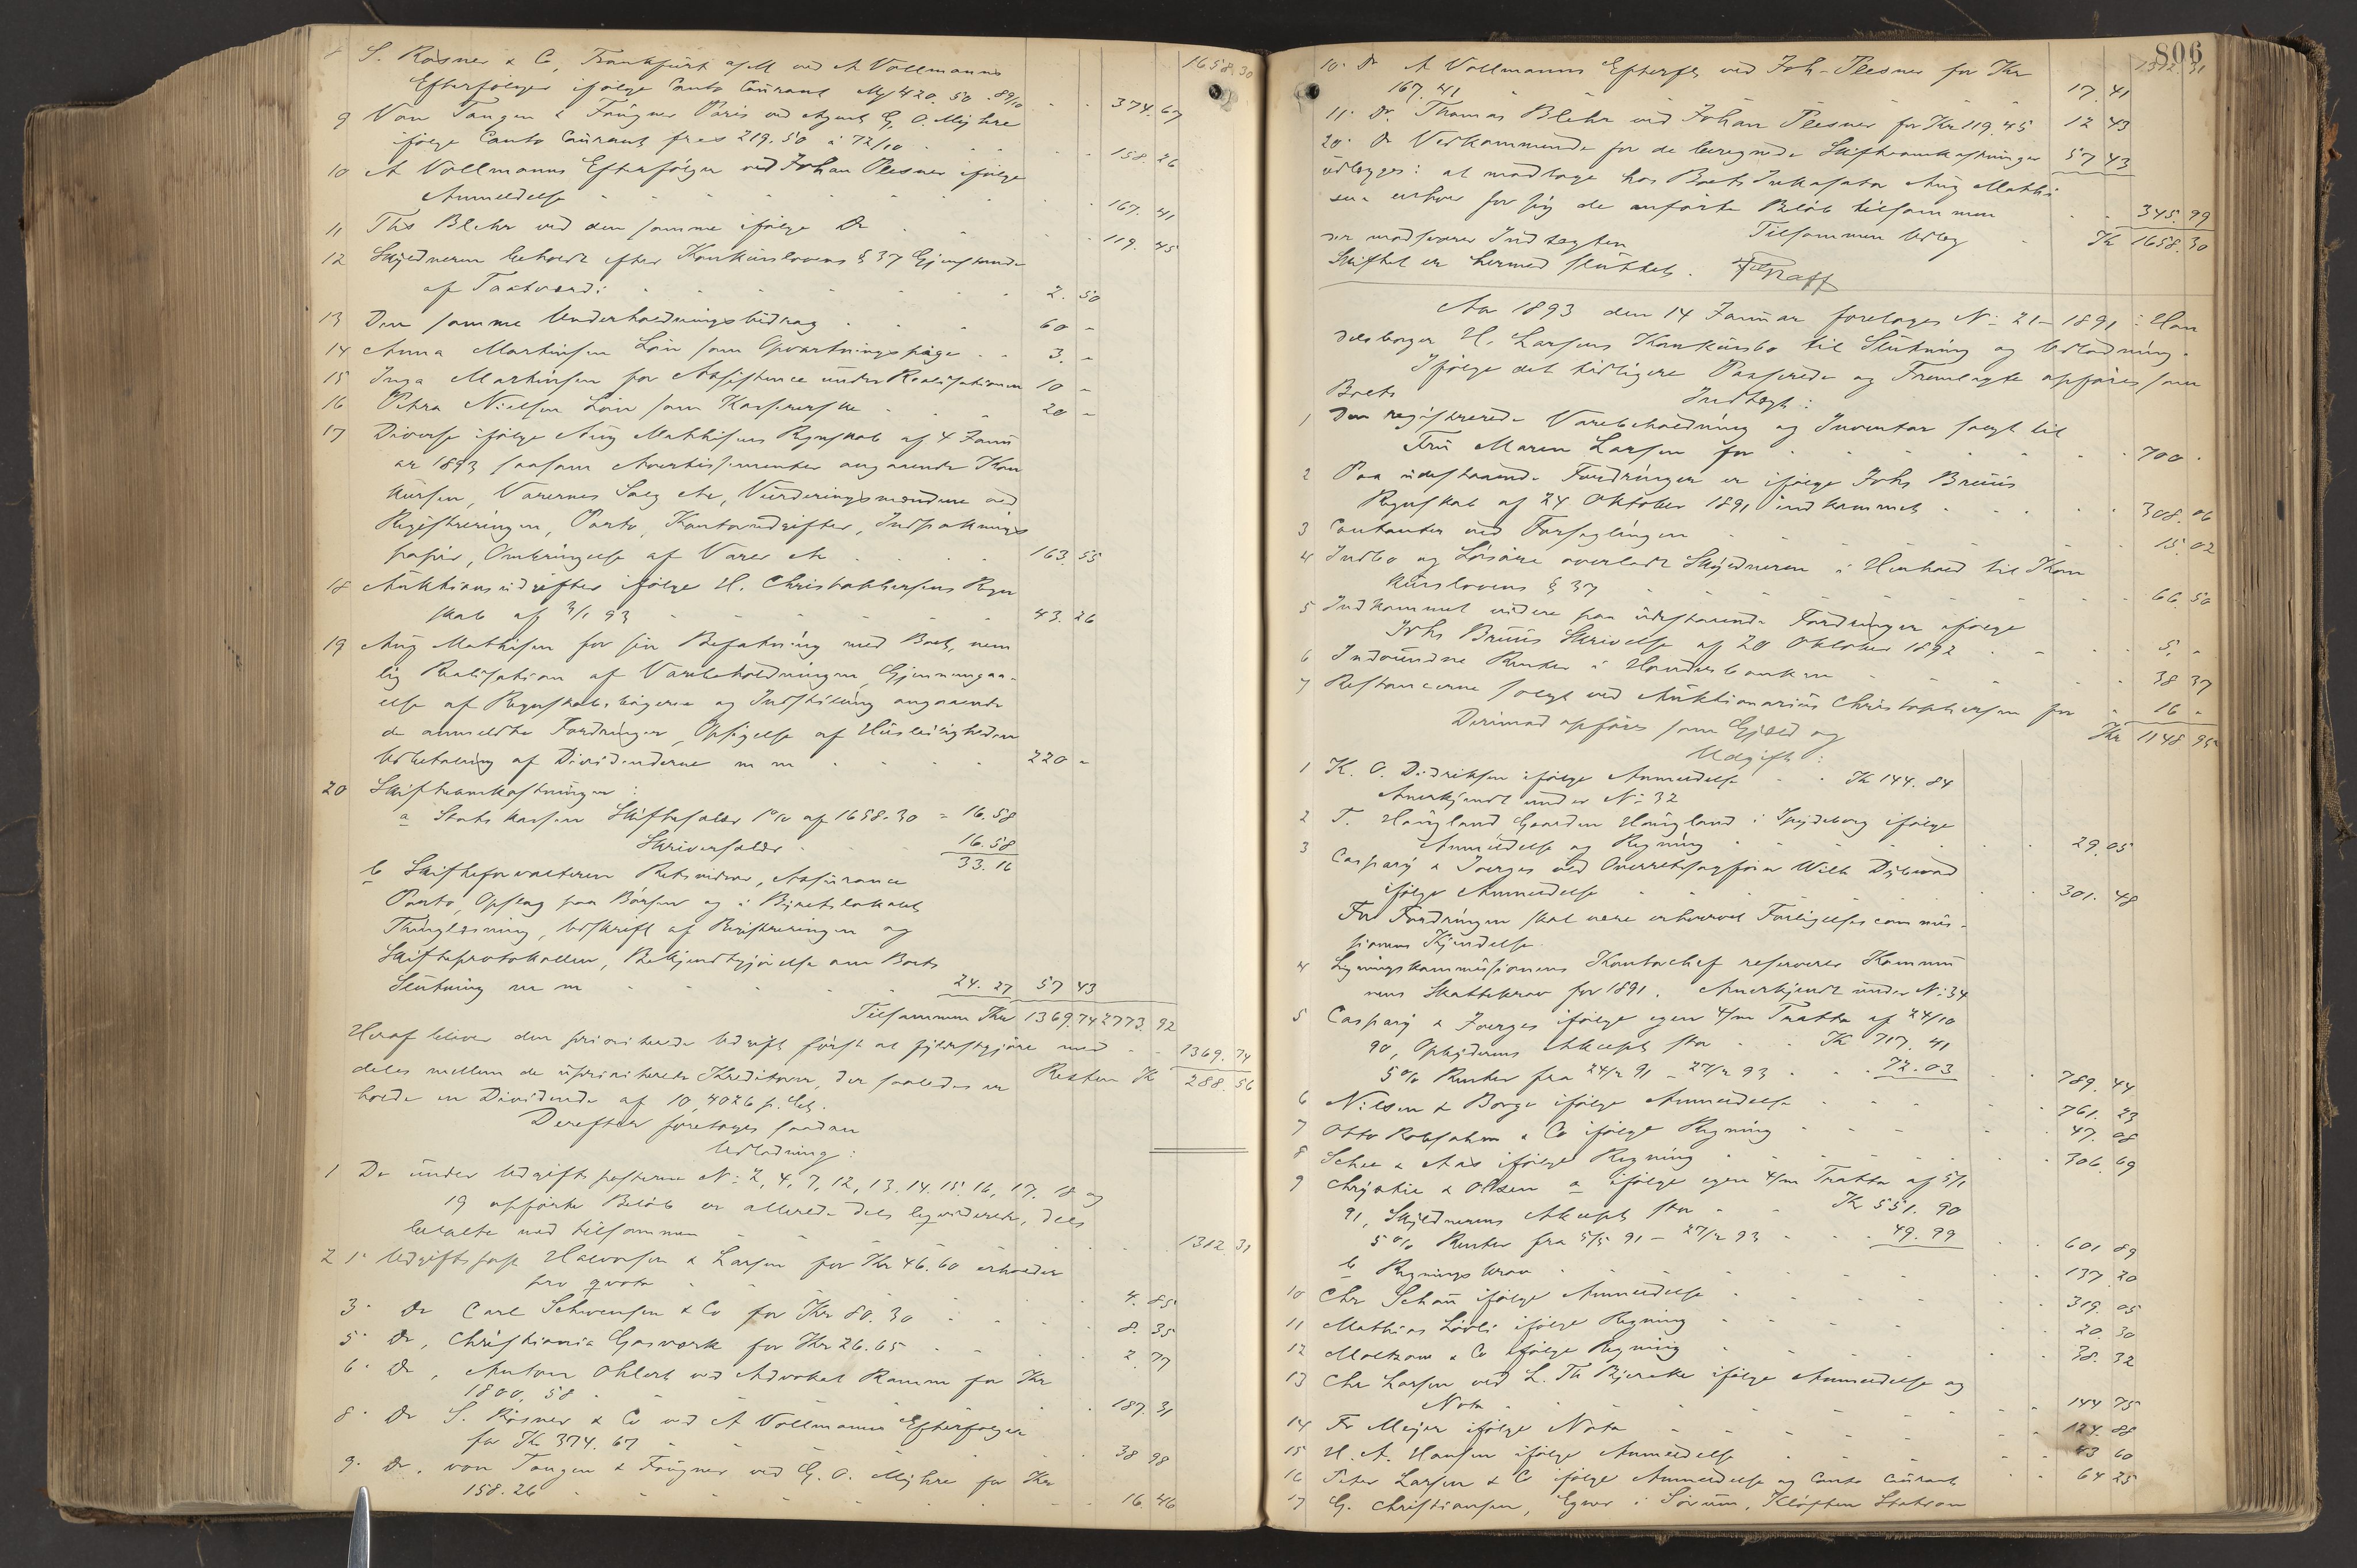 1658.30
8 S. Rosner & Co, Frankfurt a/M ved A Vollmanns
Efterfølger ifølge Conto Courant Mf 420. 50 . 89/10 374.67
9 Von Tangen & Fougner Paris ved Agent G. O. Myhre
ifølge Conto Courant frcs 219.50 à 72/10 158.26
10 A Vollmanns Efterfølger ved Johan Plesner ifølge
Anmeldelse 167. 41
11 Ths Blehr ved den samme ifølge Do 119. 45
12 Skyldneren beholdt efter Konkurslovens § 37 Gjenstande
af Taxtværdi 2. 50
13 Den samme Underholdningsbidrag 60 "
14 Anna Martinsen Løn som Opvartningspige 3. "
15 Inga Martinsen for Assistence under Realisationen 10 "
16 Petra Nielsen Løn som Kassererske 20 "
17 Diverse ifølge Aug Mathisens Regnskab af 4 Janu
ar 1893 saasom Avertissementer angaaende Kon
kursen, Varernes Salg etc, Vurderingsmændene ved
Registreringen, Porto, Kontorudgifter, Indpaknings
papir, Ombringelse af Varer etc 163. 55
18 Auktionsudgifter ifølge H. Christophersens Regn
skab af 3/1 93 43. 26
19 Aug Mathisen for sin Befatning med Boet, nem
lig Realisation af Varebeholdningen, Gjennemgaa-
else af Regnskabsbøgerne og Indstilling angaaende
de anmeldte Fordringer, Opsigelse af Husleiligheden
Udbetaling af Dividenderne m m 220 "
20 Skifteomkostninger:
a Statskassen Skiftesalær 1% af 1658.30 = 16.58
Skriversalær 16.58
33.16
b Skifteforvalteren Retsvidner, Assurance
Porto, Opslag paa Børsen og i Byretslokalet
Thinglæsning, Udskrift af Registreringen og
Skifteprotokollen, Bekjendtgjørelse om Boets
Slutning m m 24. 27 57 43
Tilsammen Kr 1369.74 2773. 92
Heraf bliver den prioriterede Udgift først at fyldestgjøre med 1369. 74
Resten Kr 288. 56
deles mellem de uprioriterede Kreditorer, der saaledes er
holde en Dividende af 10,4026 p. Ct.
Derefter foretages saadan
Udlodning:
1 De under Udgiftsposterne No 2, 4, 7, 12, 13. 14. 15. 16, 17. 18 og
19 opførte Beløb er allerede dels liqviderede, dels
betalte med tilsammen 1312 31
2 1. Udgiftspost Halvorsen & Larsen for Kr 46.60 erholder
pro qvota 4. 85
3. Do Carl Schwensen & Co for Kr 80. 30 8. 35
5. Do, Christiania Gasværk for Kr 26.65 2. 77
6. Do, Anton Ohlert ved Advokat Ramm for Kr
1800, 58 187. 31
8. Do S. Rosner & Co ved A Vollmanns Efterfølger
for Kr 374. 67 38 98
9. Do, von Tangen & Fougner ved G. O. Myhre for Kr
158.26 16. 46
806
1312. 31
10. Do A Vollmanns Efterflg ved Joh. Plesner for Kr
167. 41 17. 41
11. Do. Thomas Blehr ved Johan Plesner for Kr 119. 45 12 43
20. Do Vedkommende for de beregnede Skifteomkostninger 57 43
udlægges: at modtage hos Boets Inkasator Aug Mathi
sen enhver for sig de anførte Beløb tilsammen 345. 99
Tilsammen Udlæg Kr 1658. 30
der modsvarer Indtægten
Skiftet er hermed sluttet.
Aar 1893 den 14 Januar foretoges No 21-1891: Han
delsborger H. Larsens Konkursbo til Slutning og Udlodning.
Ifølge det tidligere Passerede og Fremlagte opføres som
Boets Indtægt:
1 Den registrerede Varebeholdning og Inventar solgt til
Fru Maren Larsen for 700 .
2 Paa udestaaende Fordringer er ifølge Johs Bruus
Regnskab af 24 Oktober 1891 indkommet 308. 06
3 Contanter ved Forseglingen 15. 02
4 Indbo og Løsøre overladt Skyldneren i Henhold til Kon
kurslovens § 37 66. 50
5 Indkommet videre paa udestaaende Fordringer ifølge
Johs Bruus Skrivelse af 20 Oktober 1892 5. "
6 Indvundne Renter i Handelsbanken 38 37
7 Restancerne solgt ved Auktionarius Christophersen for 16 "
Kr 1148 95
Derimod opføres som Gjæld og
Udgift:
1 K. O. Didriksen ifølge Anmeldelse Kr 144. 84
Anerkjendt under No 32
2 T. Haugland Gaarden Haugland i Spydeberg ifølge
Anmeldelse og Regning 29. 05
3 Caspary & Joerges ved Overretssagfører Wilh Dybwad
ifølge Anmeldelse 301. 48
For Fordringen skal være erhvervet Forligelsescommis-
sionens Kjendelse.
4 Ligningskommissionens Kontorchef reserverer Kommu
nens Skattekrav for 1891. Anerkjendt under No 34
5 Caspary & Joerges ifølge egen 4/m Tratta af 24/10
90, Opbyderens Akcept stor Kr 717. 41
5% Renter fra 24/2 91 - 27/2 93 72.03 789. 44
6 Nilsen & Borge ifølge Anmeldelse 761. 23
7 Otto Robsahm & Co ifølge Regning 47. 08
8 Schee & Aas ifølge Regning 306. 69
9 Christie & Olsen a ifølge egen 4/m Tratta af 5/1
91, Skyldnerens Akcept stor Kr 551. 90
5% Renter fra 5/5 91 - 27/2 93 49. 99 601 89
b Regningskrav 137 20
10 Chr Schou ifølge Anmeldelse 319. 05
11 Mathias Løvli ifølge Regning 20. 30
12 Moltzau & Co ifølge Regning 38. 32
13 Chr Larsen ved L. Th Bjercke ifølge Anmeldelse og
Nota 144 75
14 Fr Meyer ifølge Nota 124. 88
15 H. A. Hansen ifølge Anmeldelse 43 60
16 Peter Larsen & Co ifølge Anmeldelse og Conto Courant 64 25
17 G. Christiansen, Egner i Sørum, Kløften Station